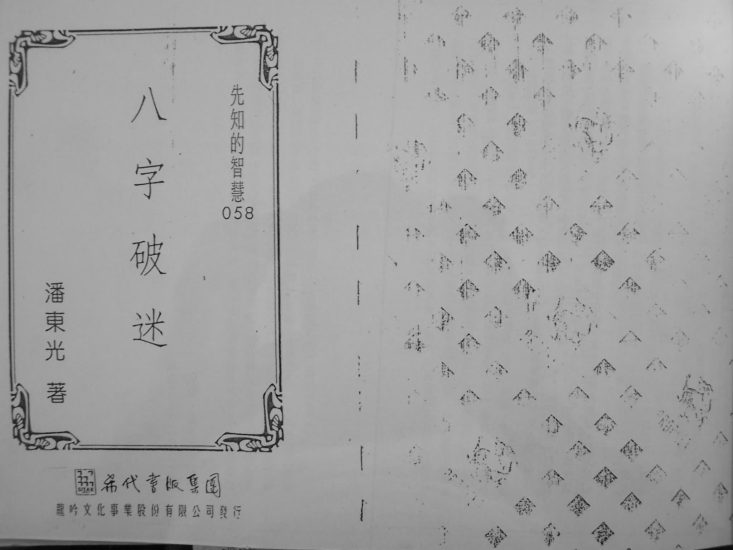 先知的智慧
058
八字破迷
潘東光 著
希代書版集團
龍吟文化事業股份有限公司發行